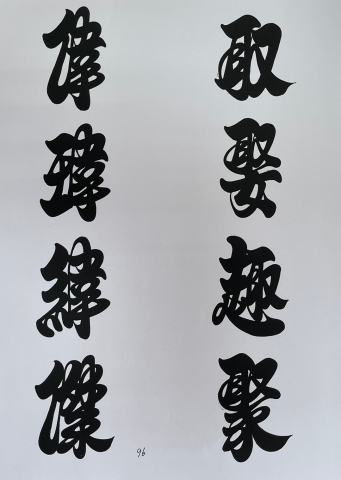 取娶趣聚
偉瑋緯傑
96